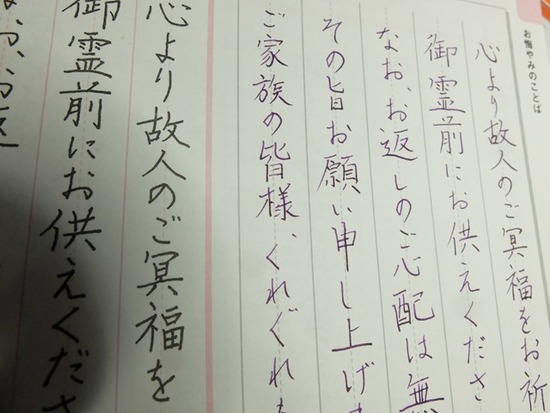 お悔やみのことば
心より故人のご冥福をお祈
御霊前にお供えくださ
なお、お返しのご心配は無
その旨お願い申し上げま
ご家族の皆様、くれぐれも
心より故人のご冥福を
御霊前にお供えくださ
なお、お返